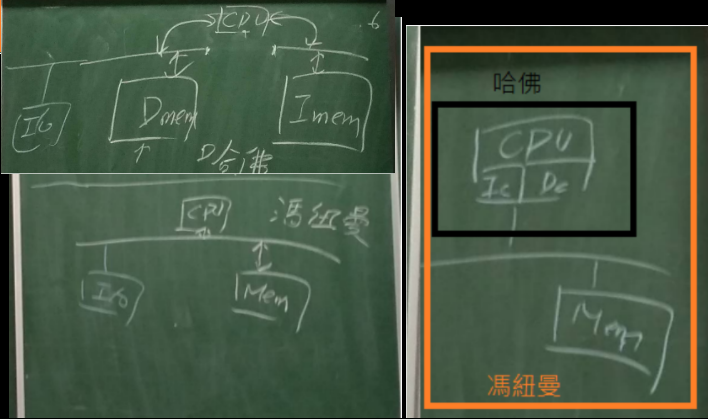 CPU
I/O
Dmem
Imem
哈佛
CPU
馮紐曼
I/O
Mem
哈佛
CPU
Ic Dc
Mem
馮紐曼